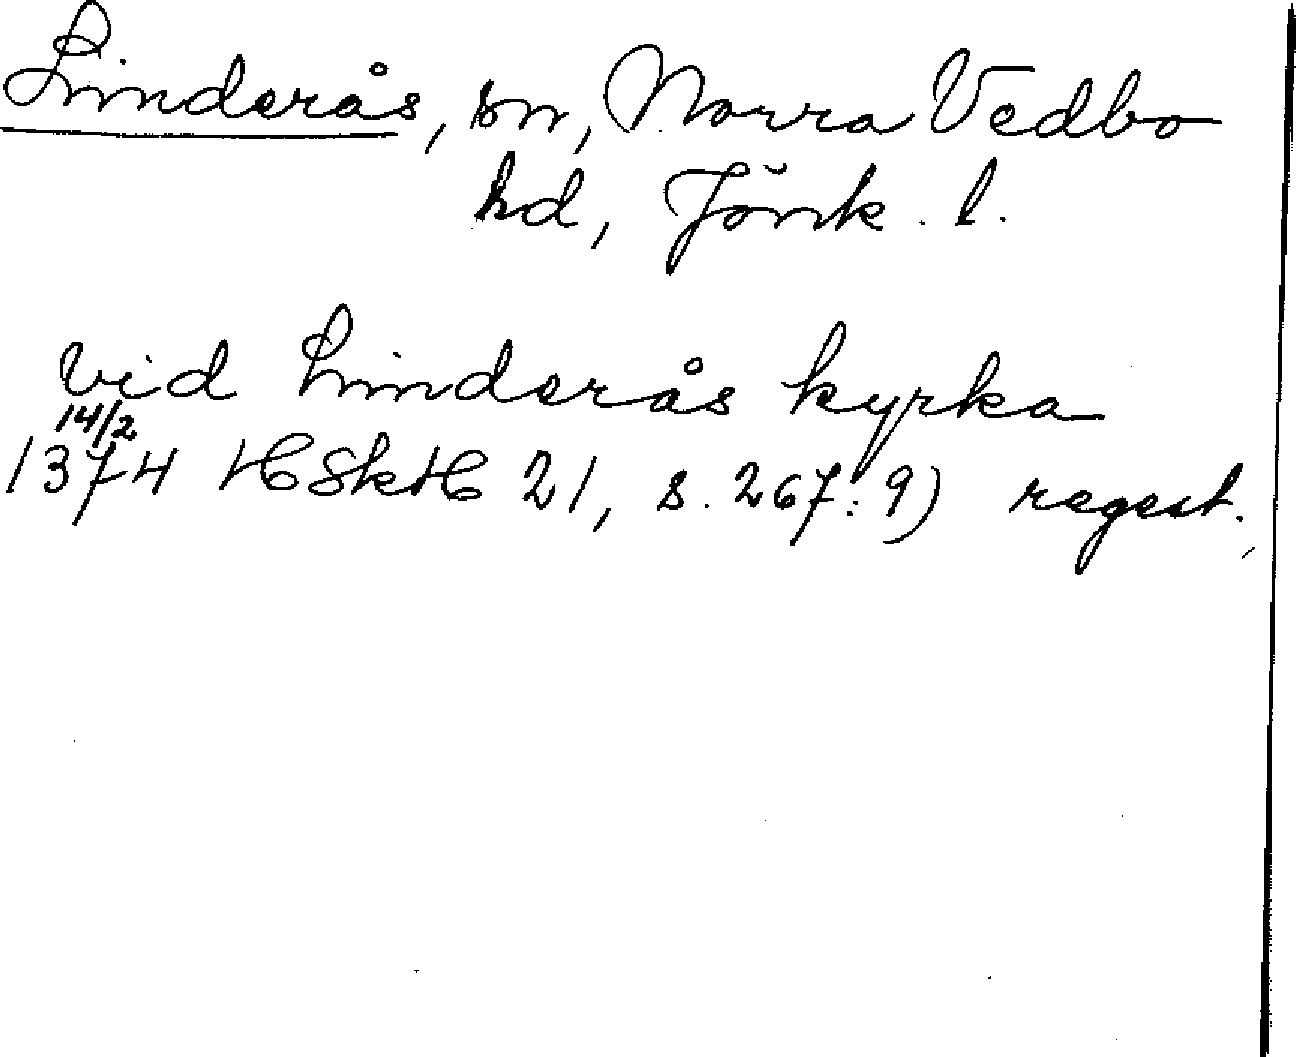 Linderås, sn, Norra Vedbo
hd, Jönk. l.
vid Linderås kyrka
14/2
1374 HSkH 21, s. 267: 9) regest.